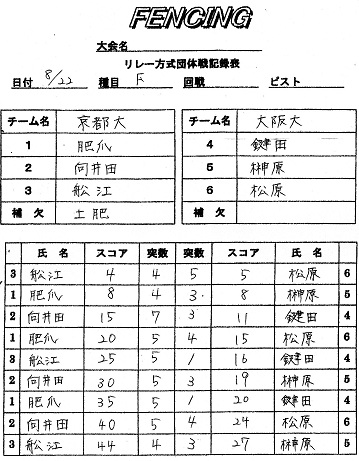 FENCING
大会名
リレー方式団体戦記録表
日付 8/22 種目 F 回戦 ピスト
チーム名 京都大 チーム名 大阪大
1 肥爪 4 鍵田
2 向井田 5 榊原
3 舩江 6 松原
補欠 土肥 補欠
氏名 スコア 突数 突数 スコア 氏名
3 舩江 4 4 5 5 松原 6
1 肥爪 8 4 3 8 榊原 5
2 向井田 15 7 3 11 鍵田 4
1 肥爪 20 5 4 15 松原 6
3 舩江 25 5 1 16 鍵田 4
2 向井田 30 5 3 19 榊原 5
1 肥爪 35 5 1 20 鍵田 4
2 向井田 40 5 4 24 松原 6
3 舩江 44 4 3 27 榊原 5